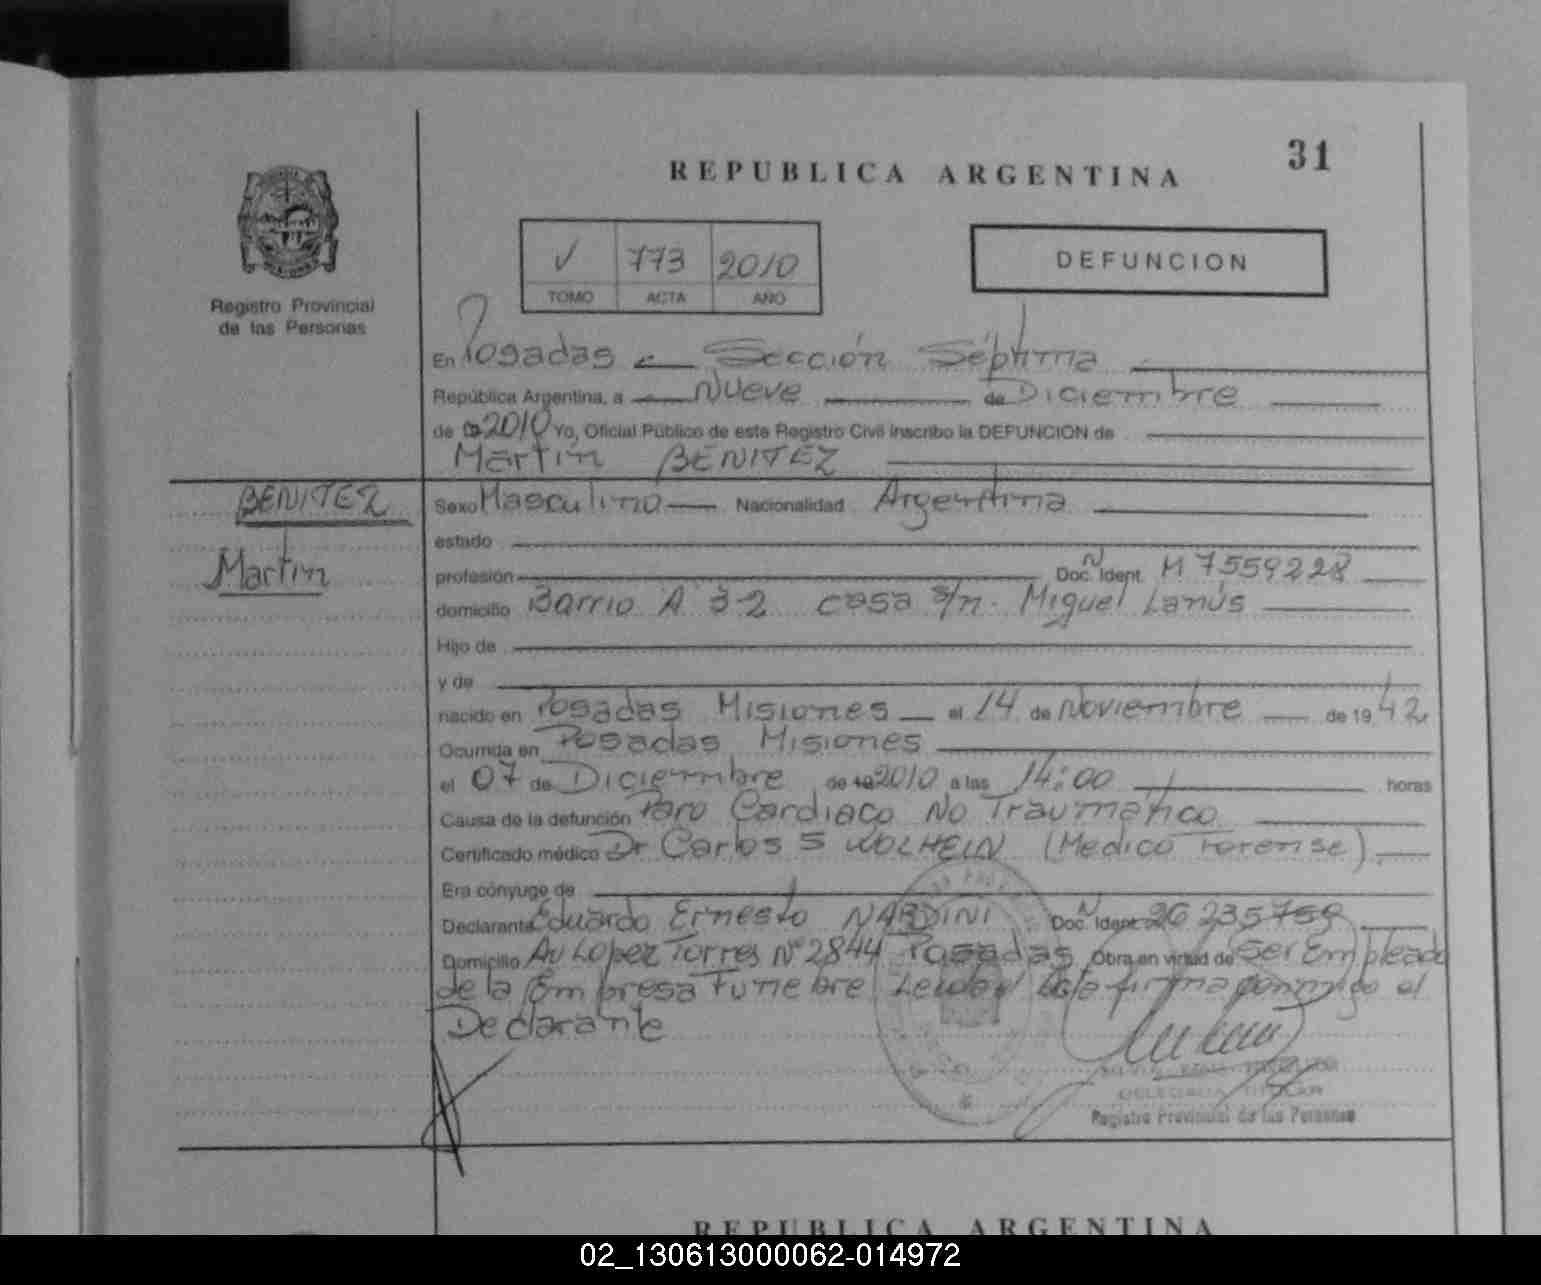 31
REPUBLICA ARGENTINA
V 773 2010
TOMO ACTA AÑO
DEFUNCION
Registro Provincial
de las Personas
En Posadas Sección Séptima
República Argentina, a Nueve de Diciembre
de 2010 Yo, Oficial Público de este Registro Civil inscribo la DEFUNCION de
Martin BENITEZ
BENITEZ
Martin
Sexo Masculino Nacionalidad Argentina
estado
profesión Doc. Ident. M 7559228
domicilio Barrio A 3-2 casa s/n. Miguel Lanús
Hijo de
y de
nacido en Posadas Misiones el 14 de Noviembre de 1942
Ocurrida en Posadas Misiones
el 07 de Diciembre de 2010 a las 14:00 horas
Causa de la defunción Paro Cardiaco No Traumático
Certificado médico Dr Carlos S WOLHEIN (Medico Forense)
Era cónyuge de
Declarante Eduardo Ernesto NARDINI Doc. Ident. 26 235759
Domicilio Av Lopez Torres N° 2844 Posadas Obra en virtud de Ser Empleado
de la Empresa Funebre Leida el Acta firma conmigo el
Declarante
DELEGADA TITULAR
Registro Provincial de las Personas
REPUBLICA ARGENTINA
02_130613000062-014972